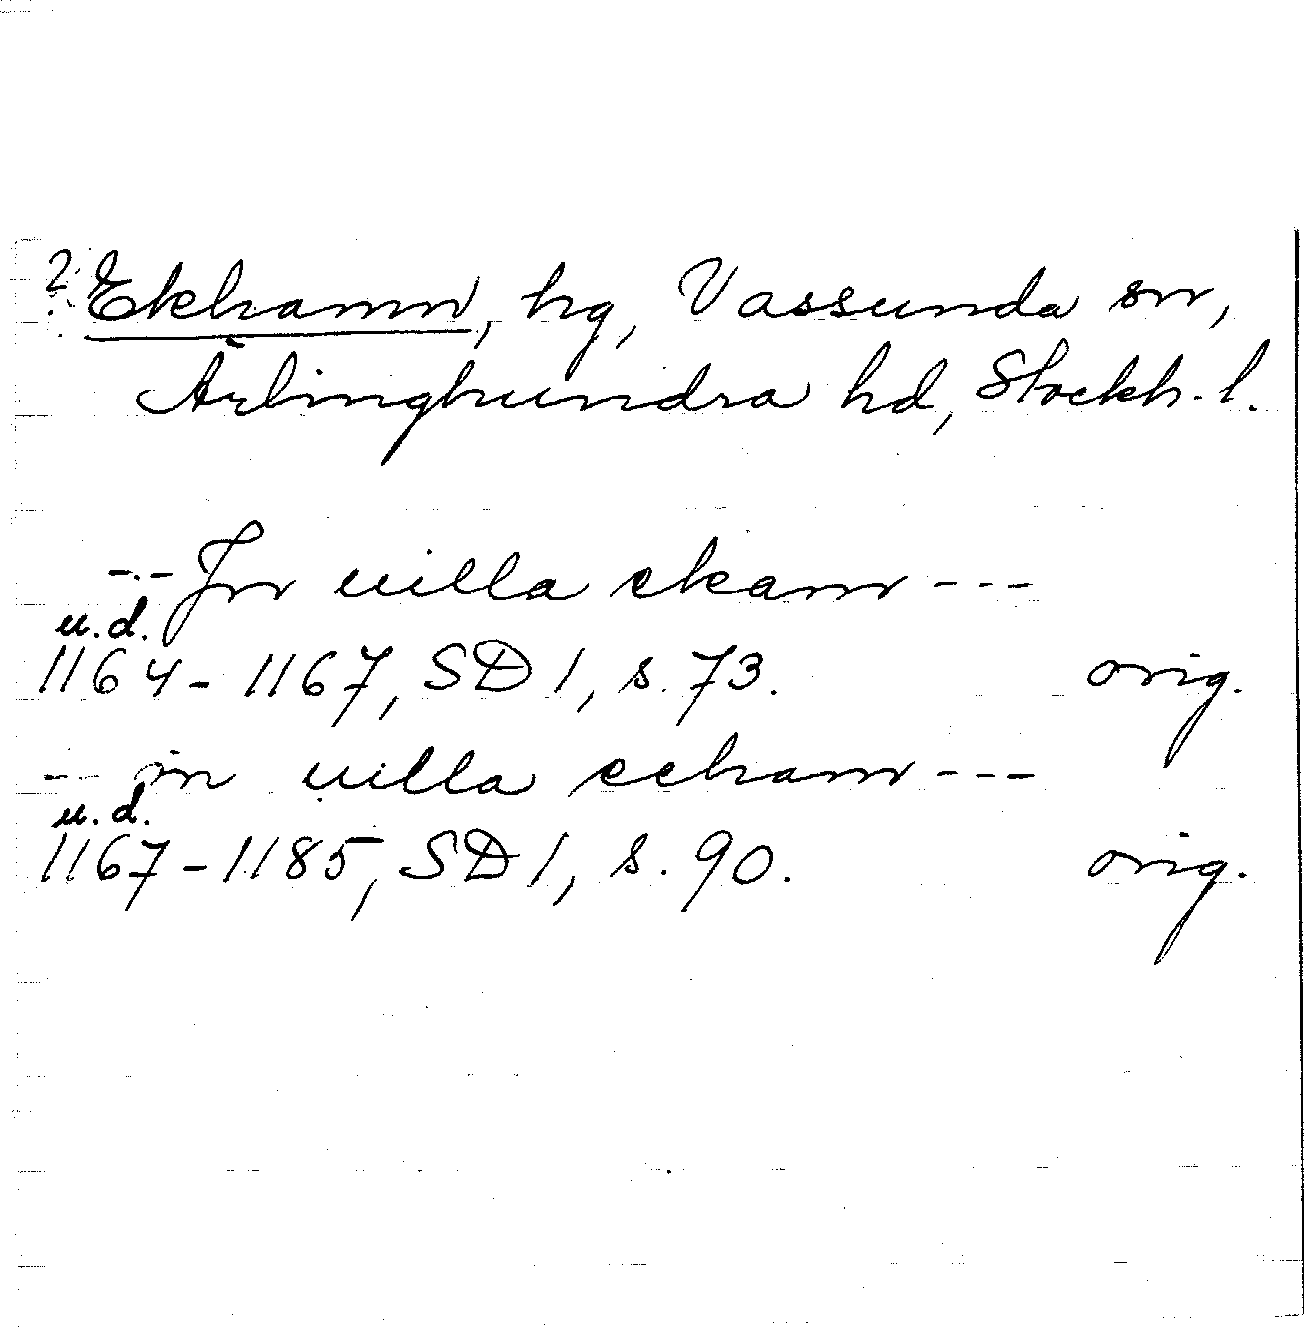 ? Ekhamn, hg, Vassunda sn,
Ärlinghundra hd, Stockh. l.
--- Jn uilla ekam ---
u.d.
1164-1167, SD 1, s. 73. orig.
--- in uilla echam ---
u.d.
1167-1185, SD 1, s. 90. orig.